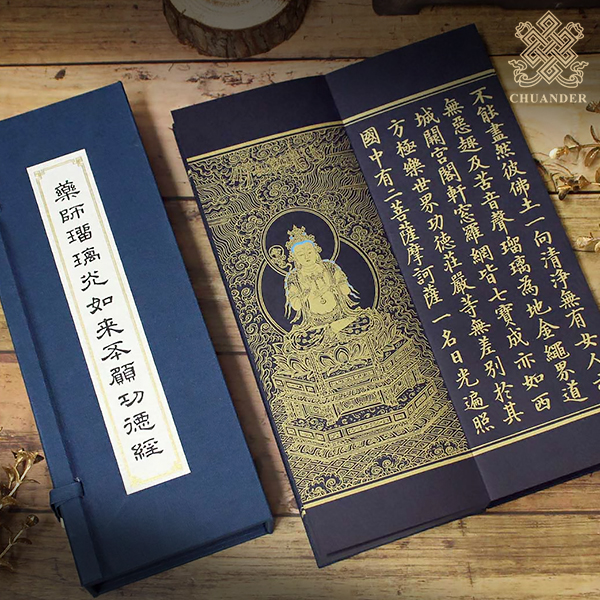 藥師瑠璃光如來本願功德經
不能盡然彼佛土一向清淨無有女人
無惡趣及苦音聲瑠璃為地金繩界道
城闕宮閣軒窓羅網皆七寶成亦如西
方極樂世界功德莊嚴等無差別於其
國中有二菩薩摩訶薩一名日光遍照
CHUANDER